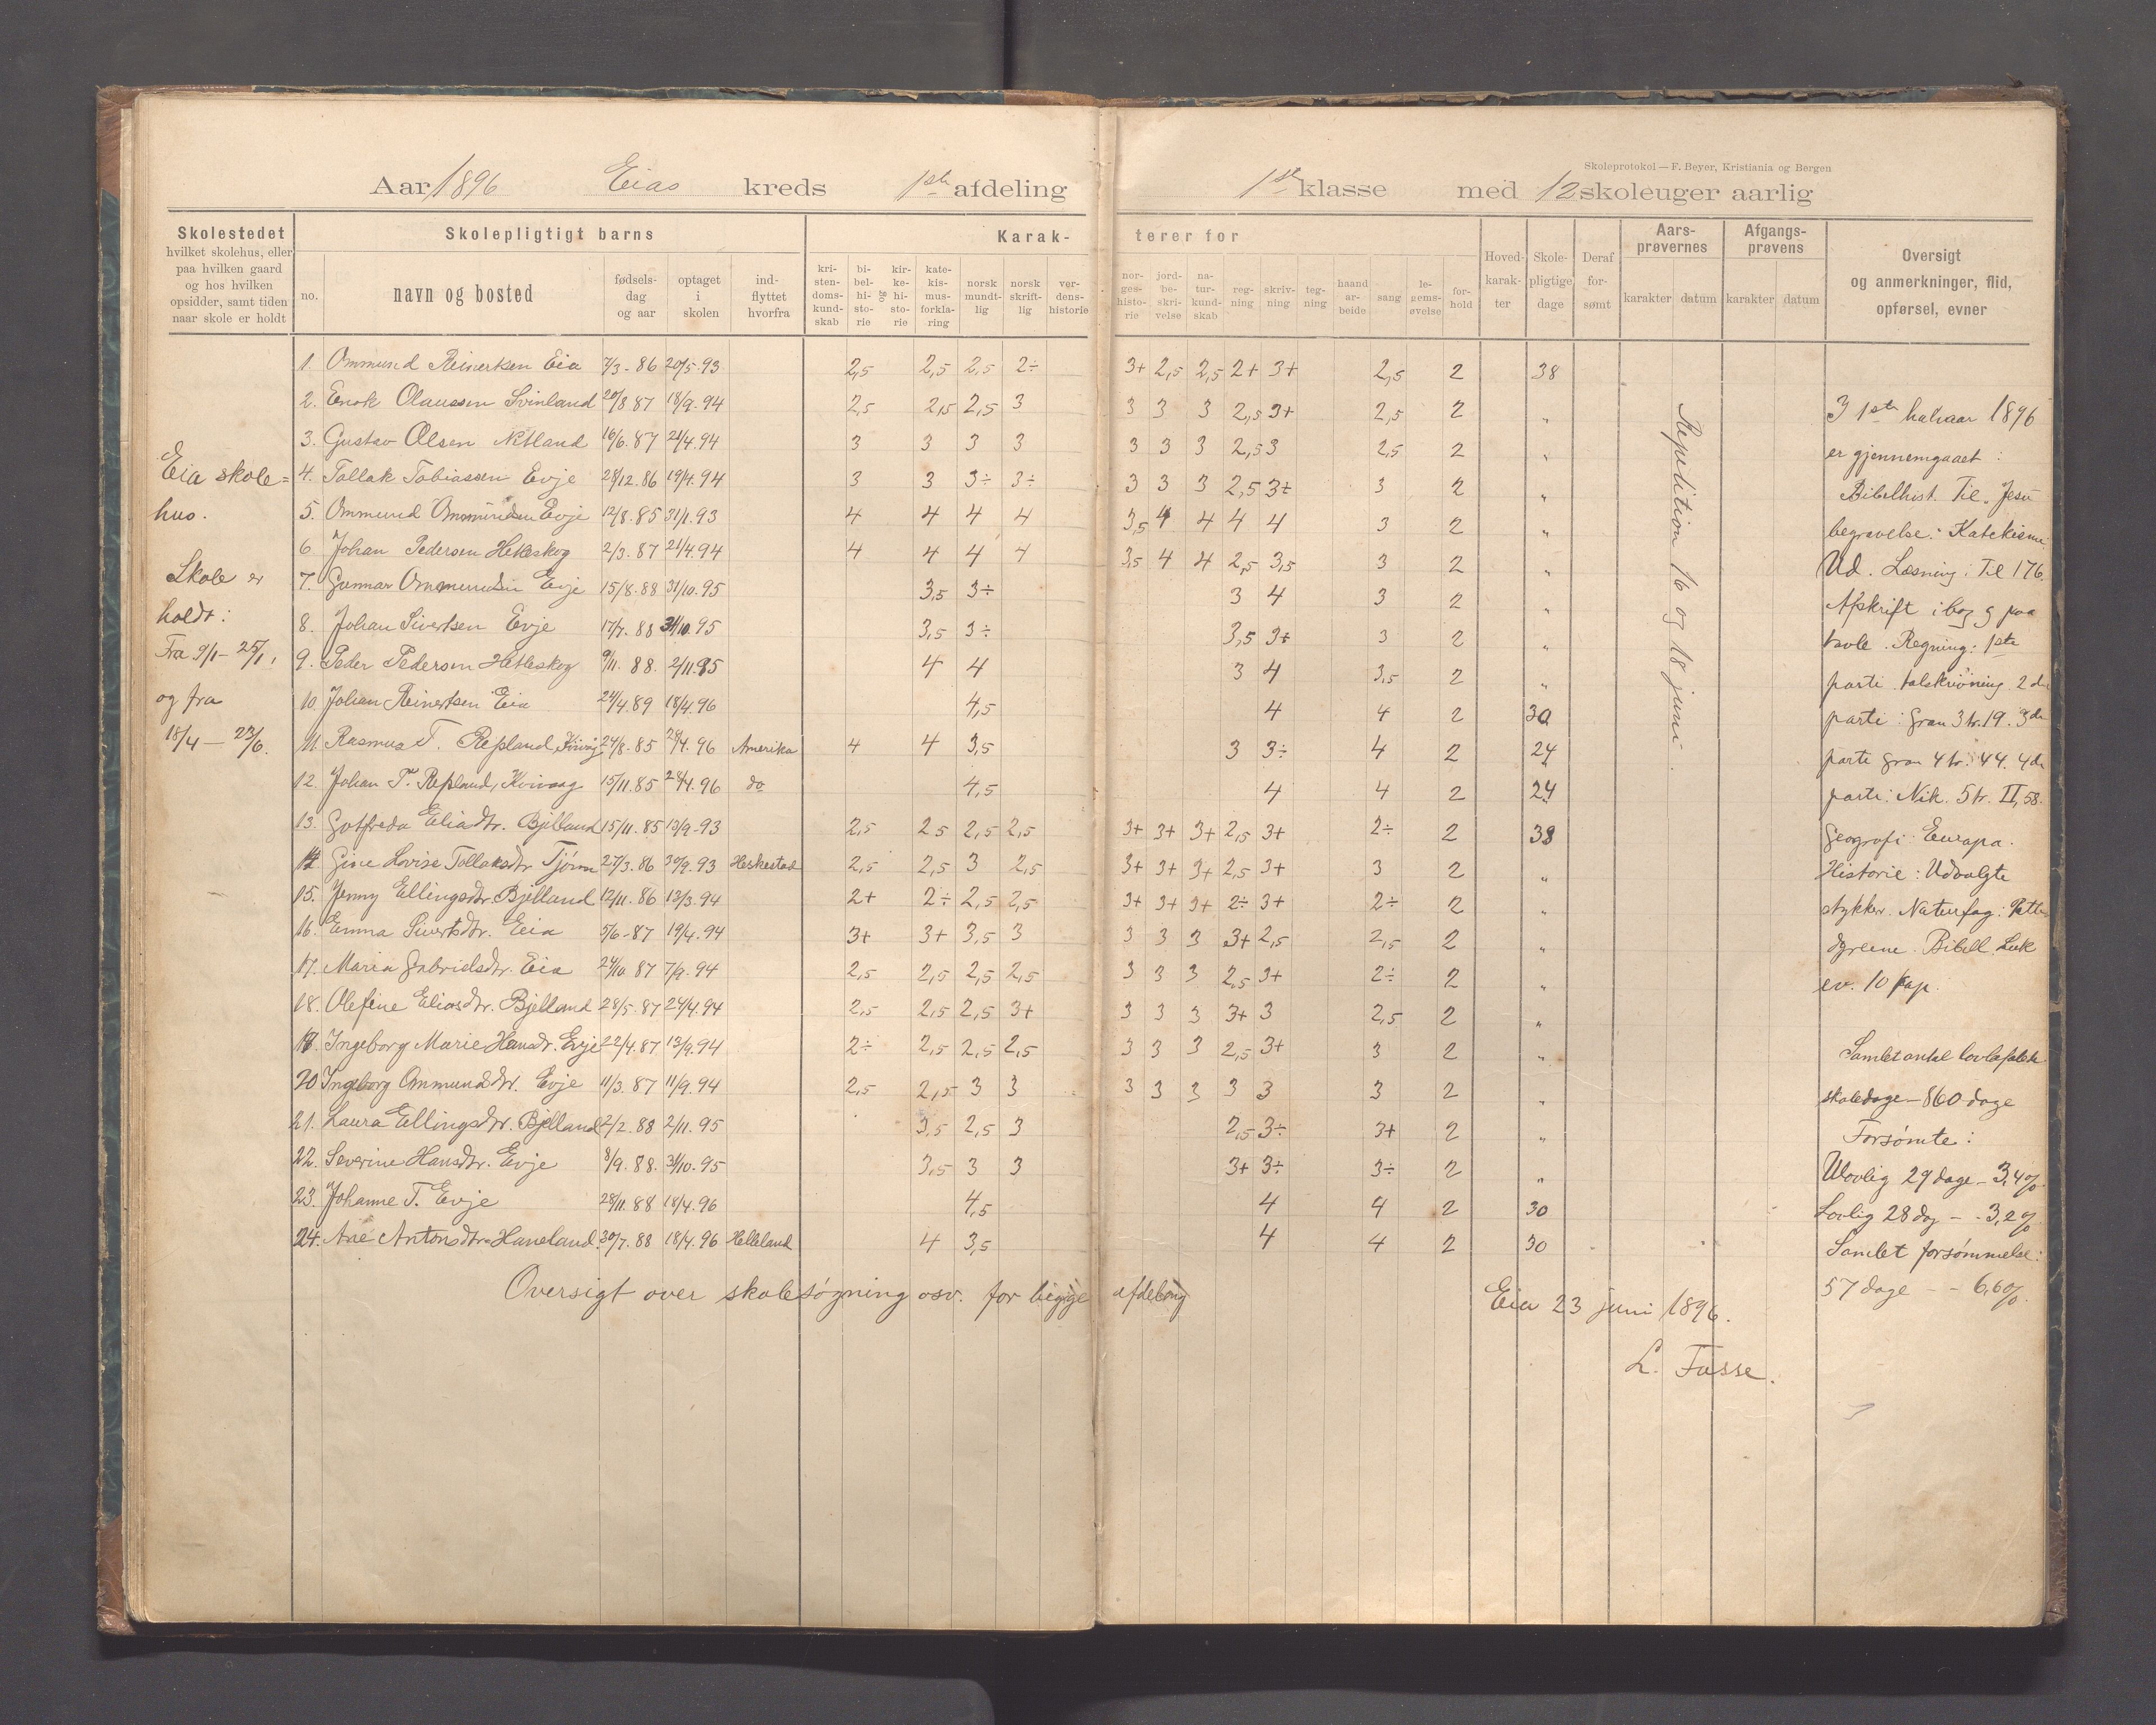 Skoleprotokol — F. Beyer, Kristiania og Bergen
Aar 1896 Eias kreds 1ste afdeling 1ste klasse med 12 skoleuger aarlig
Skolestedet
hvilket skolehus, eller
paa hvilken gaard
og hos hvilken
opsidder, samt tiden
naar skole er holdt
Skolepligtigt barns
no. navn og bosted fødsels-dag og aar optaget i skolen ind-flyttet hvorfra
Karak- terer for
kri-sten-doms-kund-skab bi-bel-hi-sto-rie og kir-ke-hi-sto-rie kate-kis-mus-forkla-ring norsk mundt-lig norsk skrift-lig ver-dens-historie
nor-ges-histo-rie jord-be-skri-velse na-tur-kund-skab reg-ning skriv-ning teg-ning haand ar-beide sang le-gems-øvelse for-hold
Hoved-karak-ter Skole-pligtige dage Deraf for-sømt
Aars-prøvernes karakter datum
Afgangs-prøvens karakter datum
Oversigt
og anmerkninger, flid,
opførsel, evner
Eia skole=
hus.
Skole er
holdt:
Fra 9/1 – 25/1,
og fra
18/4 – 23/6.
1. Ommund Reinertsen Eia 7/3 - 86 20/5. 93 2,5 2,5 2,5 2÷ 3+ 2,5 2,5 2+ 3+ 2,5 2 38
2. Enok Olaussen Svinland 20/8 87 18/9. 94 2,5 2,5 2,5 3 3 3 3 2,5 3+ 2,5 2 "
3. Gustav Olsen Netland 16/6. 87 21/4. 94 3 3 3 3 3 3 3 2,5 3 2,5 2 "
4. Tollak Tobiassen Evje 28/12. 86 19/4. 94 3 3 3÷ 3÷ 3 3 3 2,5 3+ 3 2 "
5. Ommund Ommundsen Evje 12/8. 85 31/1. 93 4 4 4 4 3,5 4 4 4 4 3 2 "
6. Johan Pedersen Hetleskog 2/3. 87 21/4. 94 4 4 4 4 3,5 4 4 2,5 3,5 3 2 "
7. Gunnar Ommundsen Evje 15/8. 88 31/10. 95 3,5 3÷ 3 4 3 2 "
8. Johan Sivertsen Evje 17/7. 88 31/10. 95 3,5 3÷ 3,5 3+ 3 2 "
9. Peder Pedersen Hetleskog 9/11. 88. 2/11. 95 4 4 3 4 3,5 2 "
10. Johan Reinertsen Eia 24/4. 89 18/4. 96 4,5 4 4 2 30
11. Rasmus T. Repland, 24/8. 85 28/4. 96 Amerika 4 4 3,5 3 3÷ 4 2 24
12. Johan T. Repland, Kvivaag 15/11. 85 28/4. 96 do 4,5 4 4 2 24
13. Gotfreda Eliadtr. Bjelland 15/11. 85 13/9. 93 2,5 2,5 2,5 2,5 3+ 3+ 3+ 2,5 3+ 2÷ 2 38
14. Gine Lovise Tollaksdtr Tjørn 27/3. 86 30/9. 93 Heskestad 2,5 2,5 3 2,5 3+ 3+ 3+ 2,5 3+ 3 2 "
15. Jenny Ellingsdtr. Bjelland 12/11. 86 13/3. 94 2+ 2÷ 2,5 2,5 3+ 3+ 3+ 2÷ 3+ 2÷ 2 "
16. Emma Sivertsdtr. Eia 5/6 - 87 19/4. 94 3+ 3+ 3,5 3 3 3 3 3+ 2,5 2,5 2 "
17. Maria Gabrielsdtr. Eia 24/10. 87 7/9. 94 2,5 2,5 2,5 2,5 3 3 3 2,5 3+ 2÷ 2 "
18. Olefine Eliasdtr. Bjelland 28/5. 87 24/4. 94 2,5 2,5 2,5 3+ 3 3 3 3+ 3 2,5 2 "
19. Ingeborg Marie Hansdr. Evje 22/4. 87 13/9. 94 2÷ 2,5 2,5 2,5 3 3 3 2,5 3+ 3 2 "
20 Ingeborg Ommundsdtr. Evje 11/3. 87 11/9. 94 2,5 2,5 3 3 3 3 3 3 3 3 2 "
21. Laura Ellingsdtr. Bjelland 2/2. 88 2/11. 95 3,5 2,5 3 2,5 3÷ 3+ 2 "
22. Severine Hansdtr. Evje 8/9. 88. 31/10. 95 3,5 3 3 3+ 3÷ 3÷ 2 "
23. Johanne T. Evje 28/11. 88 18/4. 96 4,5 4 4 2 30
24. Ane Antonsdtr. Haneland. 30/7. 88 18/4. 96 Helleland 4 3,5 4 4 2 30
Repetition 16 og 18 juni.
I 1ste halvaar 1896
er gjennemgaaet :
Bibelhist. Til Jesu
begravelse. Katekisme:
Ud. Læsning: Til 176.
Afskrift i bog g paa
tavle. Regning: 1ste
parti talskrivning 2det
parti: Gran 3 tr. 19. 3de
parti gran 4 tr. 44. 4de
parti: Nik. 5 tr. II, 58.
Geografi: Europa.
Historie: Udvalgte
stykker. Naturfag: Patte
dyrene. Bibell. Luk
ev. 10 kap.
Samlet antal lovbefalede
skoledage – 860 dage
Forsømte:
Ulovlig 29 dage – 3,4%
Lovlig 28 dag – - 3,2%
Samlet forsømmelse:
57 dage – - 6,6%.
Oversigt over skolesøgning osv. for begge afdeling
Eia 23 juni 1896.
L. Fasse.